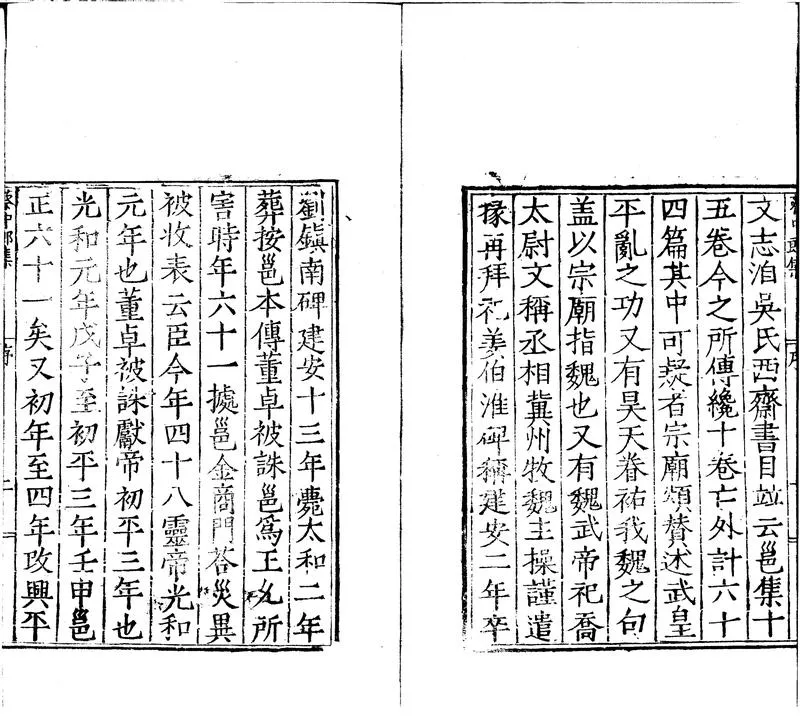 文志洎吳氏西齋書目竝云邕集十
五卷今之所傳纔十卷亡外計六十
四篇其中可疑者宗廟頌贊述武皇
平亂之功又有昊天眷祐我魏之句
盖以宗廟指魏也又有魏武帝祀喬
太尉文稱丞相冀州牧魏主操謹遣
掾再拜祀姜伯淮碑稱建安二年卒
劉鎮南碑建安十三年薨太和二年
葬按邕本傳董卓被誅邕爲王允所
害時年六十一據邕金商門荅災異
被收表云臣今年四十八靈帝光和
元年也董卓被誅獻帝初平三年也
光和元年戊子至初平三年壬申邕
正六十一矣又初年至四年改興平
蔡中郎集
序
二